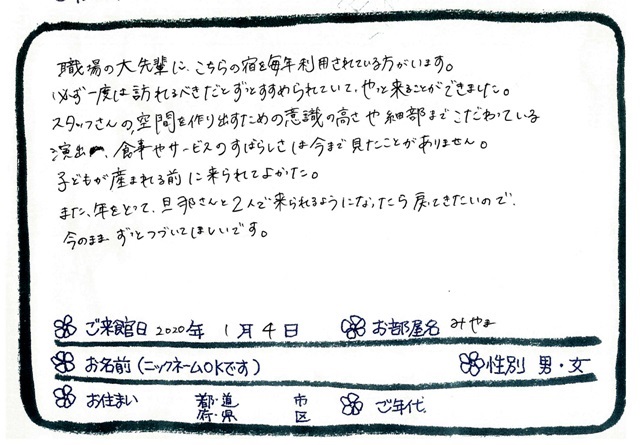 職場の大先輩に、こちらの宿を毎年利用されている方がいます。
必ず一度は訪れるべきだとずっとすすめられていて、やっと来ることができました。
スタッフさんの、空間を作り出すための意識の高さや細部までこだわっている
演出、食事やサービスのすばらしさは今まで見たことがありません。
子どもが産まれる前に来られてよかった。
また、年をとって、旦那さんと2人で来られるようになったら戻ってきたいので、
今のままずっとつづいてほしいです。
ご来館日 2020年 1月4日 お部屋名 みやま
お名前(ニックネームOKです) 性別 男・女
お住まい 都・道 市 ご年代
府・県 区